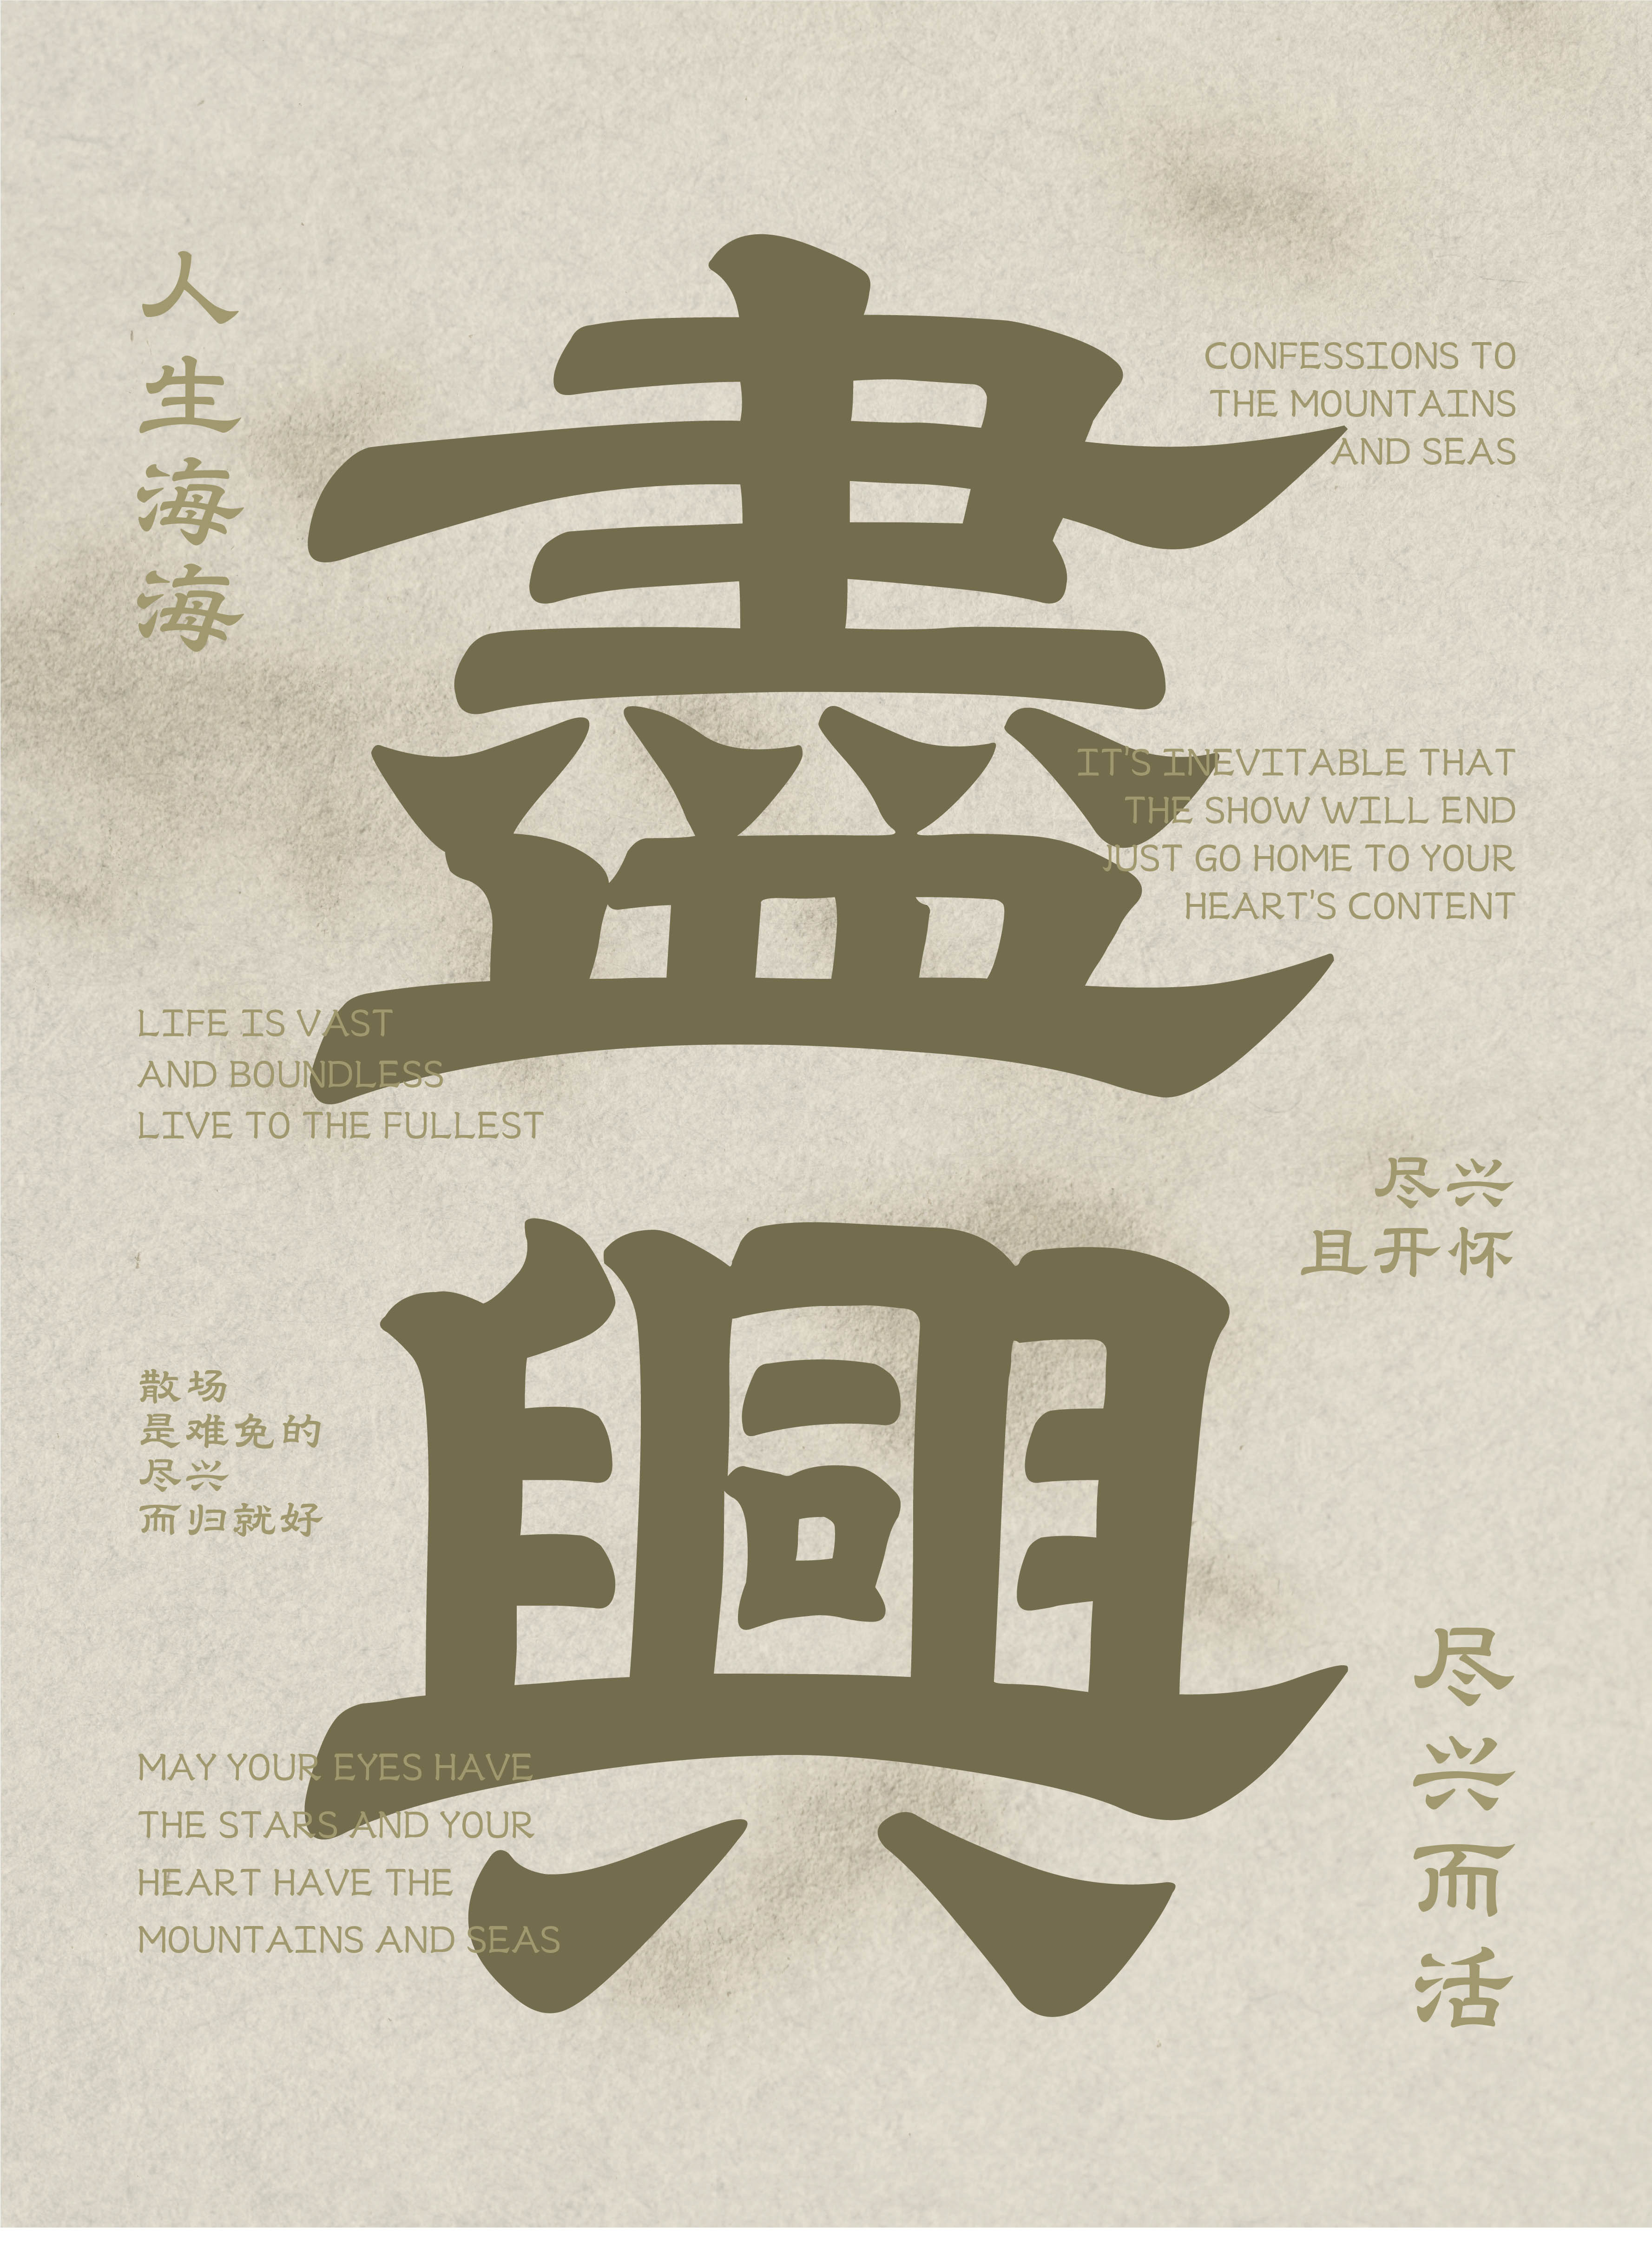 人生海海
CONFESSIONS TO
THE MOUNTAINS
AND SEAS
盡興
IT'S INEVITABLE THAT
THE SHOW WILL END
JUST GO HOME TO YOUR
HEART'S CONTENT
LIFE IS VAST
AND BOUNDLESS
LIVE TO THE FULLEST
尽兴
且开怀
散场
是难免的
尽兴
而归就好
尽兴而活
MAY YOUR EYES HAVE
THE STARS AND YOUR
HEART HAVE THE
MOUNTAINS AND SEAS